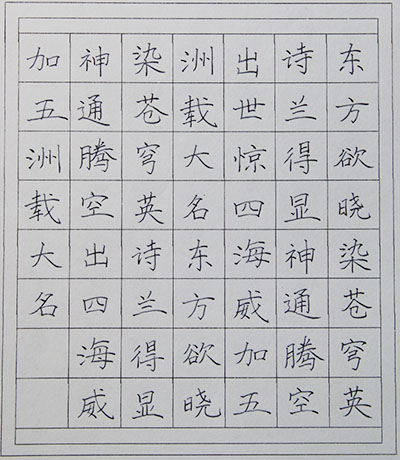 东方欲晓染苍穹英
诗兰得显神通腾空
出世惊四海威加五
洲载大名东方欲晓
染苍穹英诗兰得显
神通腾空出四海威
加五洲载大名